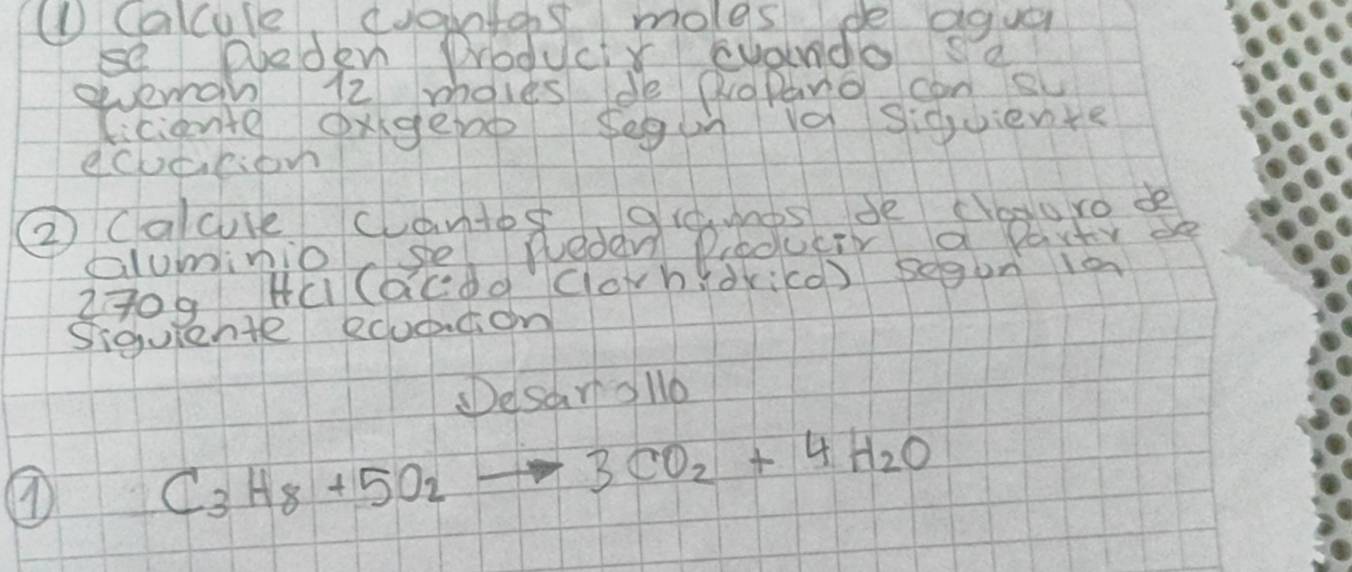 ① Calcule cuantas moles de agua
se Pueden Producir cuando se
queman 12 moles de Propano con su
ficiente oxigeno segun la siguiente
ecuacion
② Calcule cuantos gramos de cloruro de
aluminio se Pueden Producir a Partir de
270g HCl (acido Clorhidrico) segun la
siguiente ecuacion
Desarrollo
① C₃H₈ + 5O₂ → 3CO₂ + 4H₂O